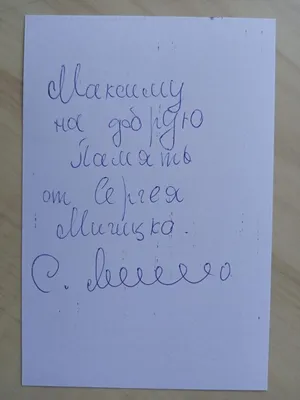 Максиму
на добрую
Память
от Сергея
Мигицка.
С.